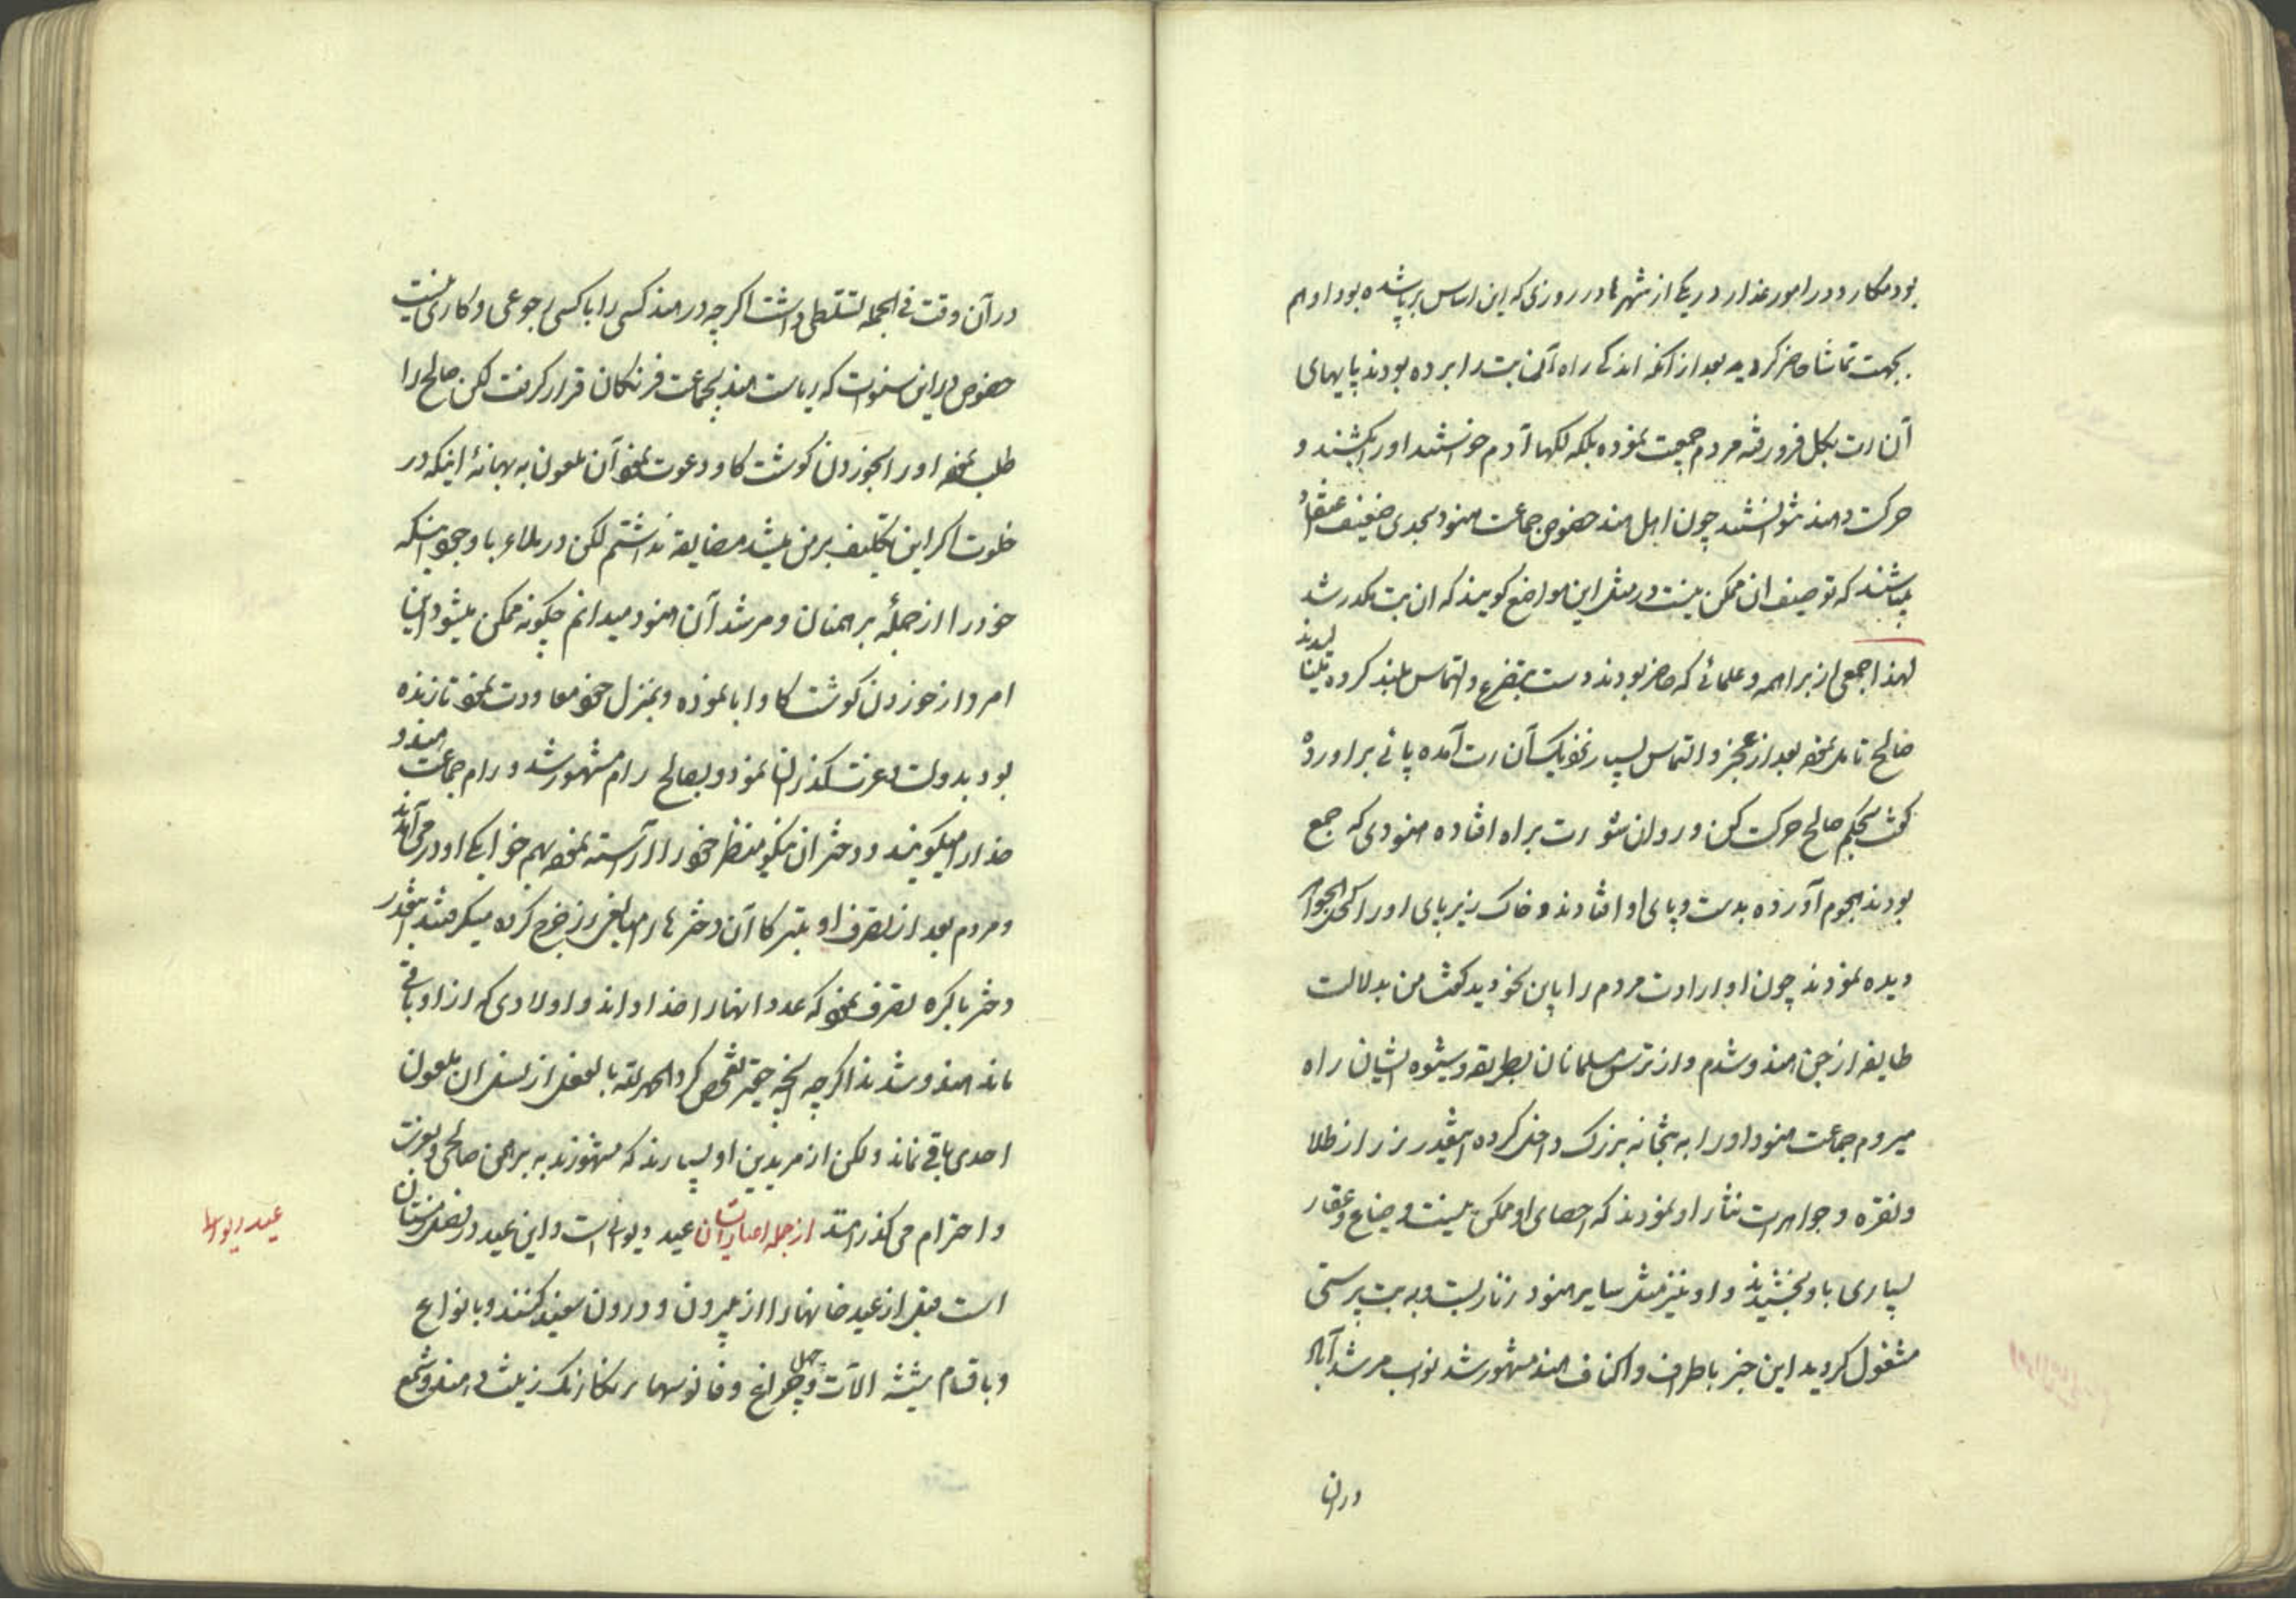 بود مکار و در امور غدار در یکی از شهرها در روزی که این اساس برپا شده بود او هم
بجهت تماشا حاضر گردید بعد از آنکه اندکی راه آن بت را برده بودند پایهای
آن رت بگل فرو رفته مردم جمعیت نموده بلکه لکها آدم خواستند او را بکشند و
حرکت دهند نتوانستند چون اهل هند خصوص جماعت هنود بحدی ضعیف عقل
میباشند که توصیف آن ممکن نیست در مثل این مواضع گویند که ان بت مکدر شد
لهذا جمعی از براهمه و علمائی که حاضر بودند دست بتضرع و التماس بلند کرده
صالح تامل نموده بعد از عجز و التماس بسیار نزدیک آن رت آمده پائی بر او زده
گفت بحکم صالح حرکت کن و روان شو رت براه افتاده هنودی که جمع
بودند هجوم آورده بدست و پای او افتادند و خاک زیر پای او را کحل الجواهر
دیده نمودند چون او ارادت مردم را باین نحو دید گفت من بدلالت
طایفه از جن هندو شدم و از ترس مسلمانان بطریقه و شیوه ایشان راه
میروم جماعت هنود او را به بتخانه بزرگ داخل کرده اینقدر زر از طلا
و نقره و جواهرات نثار او نمودند که احصای او ممکن نیست و ضیاع و عقار
بسیاری باو بخشیدند و او نیز مثل سایر هنود زنار بست و به بت پرستی
مشغول گردید این خبر باطراف و اکناف هند مشهور شد نواب مرشد آباد
در آن
در آن وقت فی الجمله تسلطی داشت اگرچه در هند کسی را با کسی رجوعی و کاری نیست
خصوص در این سنوات که ریاست هند بجماعت فرنگان قرار گرفت لکن صالح را
طلب نموده او را بخوردن گوشت گاو دعوت نمود آن ملعون به بهانهٔ اینکه در
خلوت اگر این تکلیف بر من میشد مضایقه نداشتم لکن در ملاء با وجود اینکه
خود را از جملهٔ برهمنان و مرشد آن هنود میدانم چگونه ممکن میشود این
امر و از خوردن گوشت گاو ابا نموده و بمنزل خود معاودت نمود تا زنده
بود بدولت و عزت گذران نمود و بصالح رام مشهور شد و رام جماعت هندو
خدا را میگویند و دختران نیکو منظر خود را آراسته نموده بهم خوابگی او در می آوردند
و مردم بعد از تصرف او تبرکا آن دخترها را مبالغی زر خرج کرده میگرفتند اینقدر
دختر باکره تصرف نمود که عدد انها را خدا داند و اولادی که از او باقی
ماند هندو شدند اگرچه آنچه حقیر تفحص کرد الحمد لله بالفعل از نسل ان ملعون
احدی باقی نماند ولکن از مریدین او بسیارند که مشهورند به برهمن صالحی و بعزت
و احترام می گذرانند از جمله اعیاد ایشان عید دیوالی است و این عید در فصل زمستان
است قبل از عید خانهها را از بیرون و درون سفید کنند و بانواع
و باقسام شیشه الات و چهل چراغ و فانوسها برنگارنگ زینت دهند و شمع
عید دیوالی